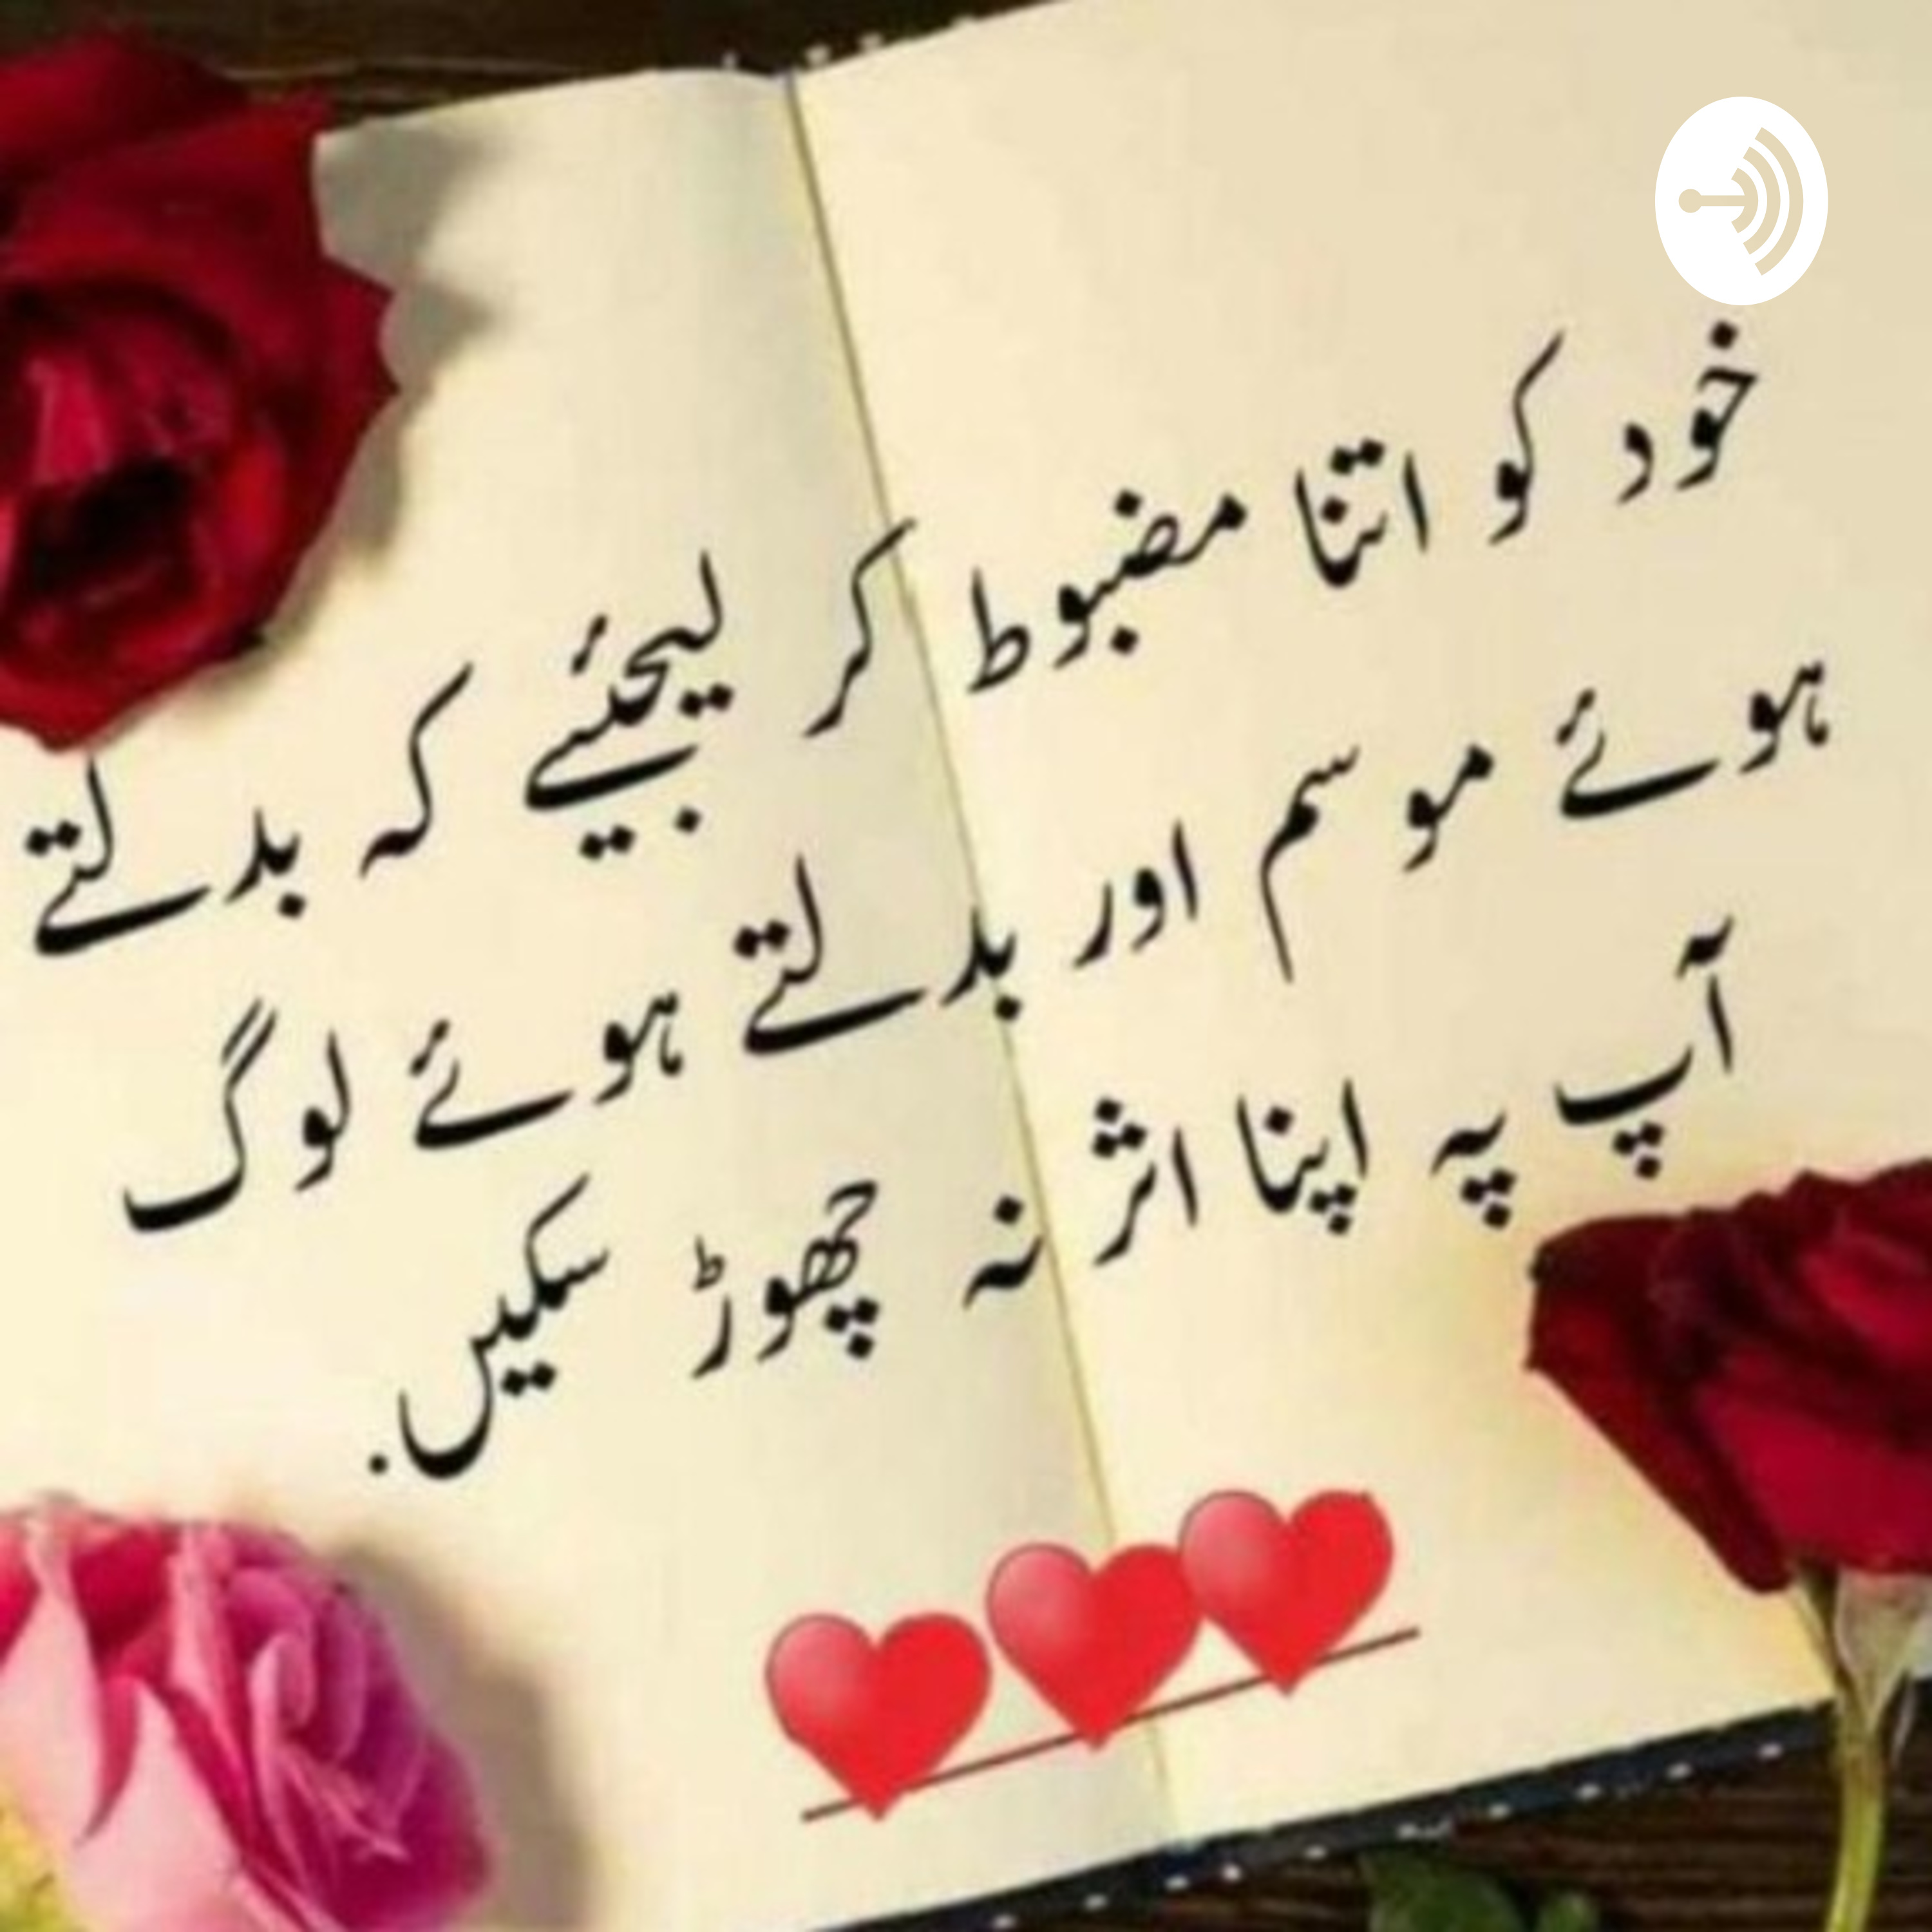 خود کو اتنا مضبوط کر لیجئیے کہ بدلتے
ہوئے موسم اور بدلتے ہوئے لوگ
آپ پہ اپنا اثر نہ چھوڑ سکیں.